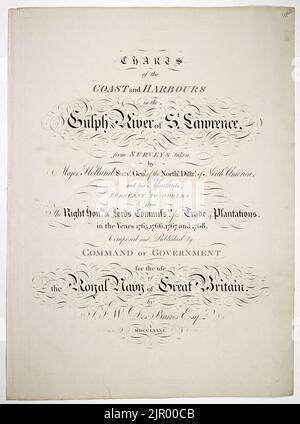 CHARTS
of the
COAST and HARBOURS
in the
Gulph & River of St. Lawrence,
from SURVEYS taken
by
Major Holland Surv. Genl. of the North. Distr. of North America,
and his Assistants,
PURSUANT TO ORDERS
from
The Right Hon. the Lords Commiss. of Trade & Plantations.
in the Years 1765, 1766, 1767 and 1768.
Composed and Published by
COMMAND OF GOVERNMENT
for the use
of
the Royal Navy of Great Britain.
by
J. F. W. Des Barres Esq.
MDCCLXXXI.
alamy
Image ID: 2JR00CB
www.alamy.com